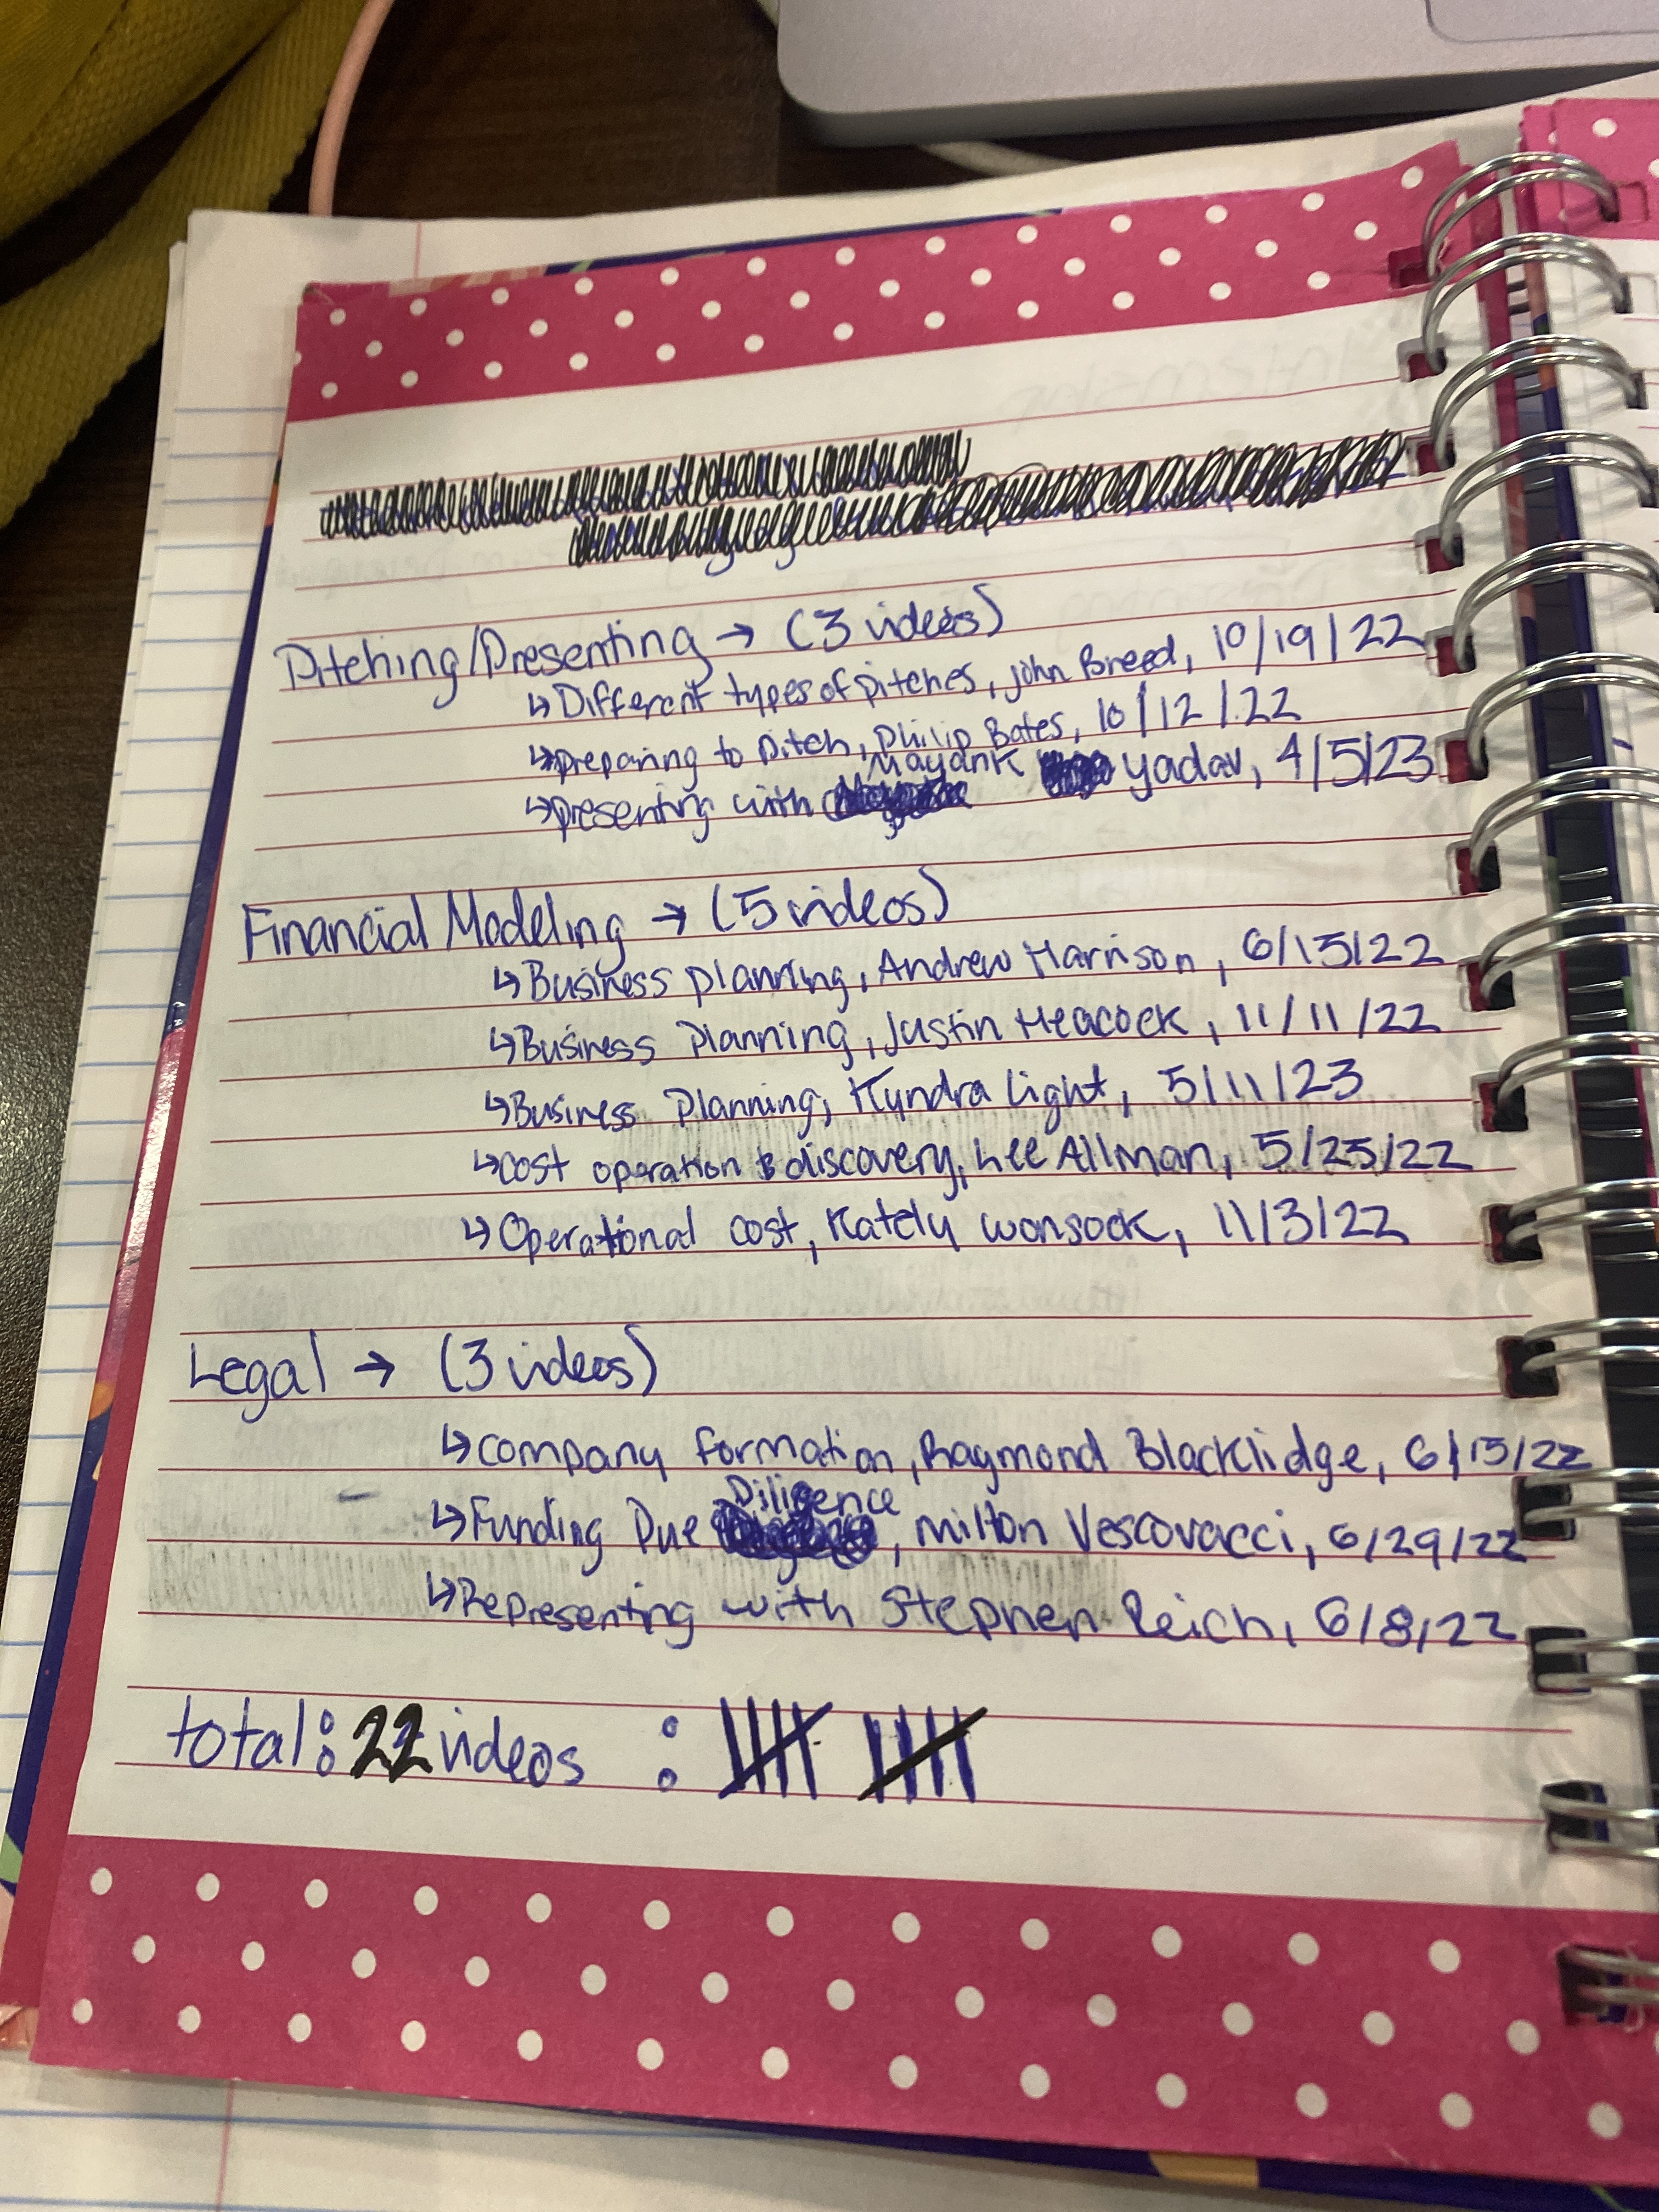 Pitching/Presenting → (3 videos)
↳ Different types of pitches, John Breed, 10/19/22
↳ preparing to pitch, Philip Bates, 10/12/22
↳ presenting with Mayank yadav, 4/5/23
Financial Modeling → (5 videos)
↳ Business planning, Andrew Harrison, 6/15/22
↳ Business Planning, Justin Heacock, 11/11/22
↳ Business Planning, Kyndra Light, 5/11/23
↳ cost operation & discovery, Lee Allman, 5/25/22
↳ Operational cost, Kately wonsock, 11/3/22
Legal → (3 videos)
↳ company formation, Raymond Blacklidge, 6/15/22
↳ Funding Due Diligence, Milton Vescovacci, 6/29/22
↳ Representing with Stephen Reich, 6/8/22
total: 22 videos :